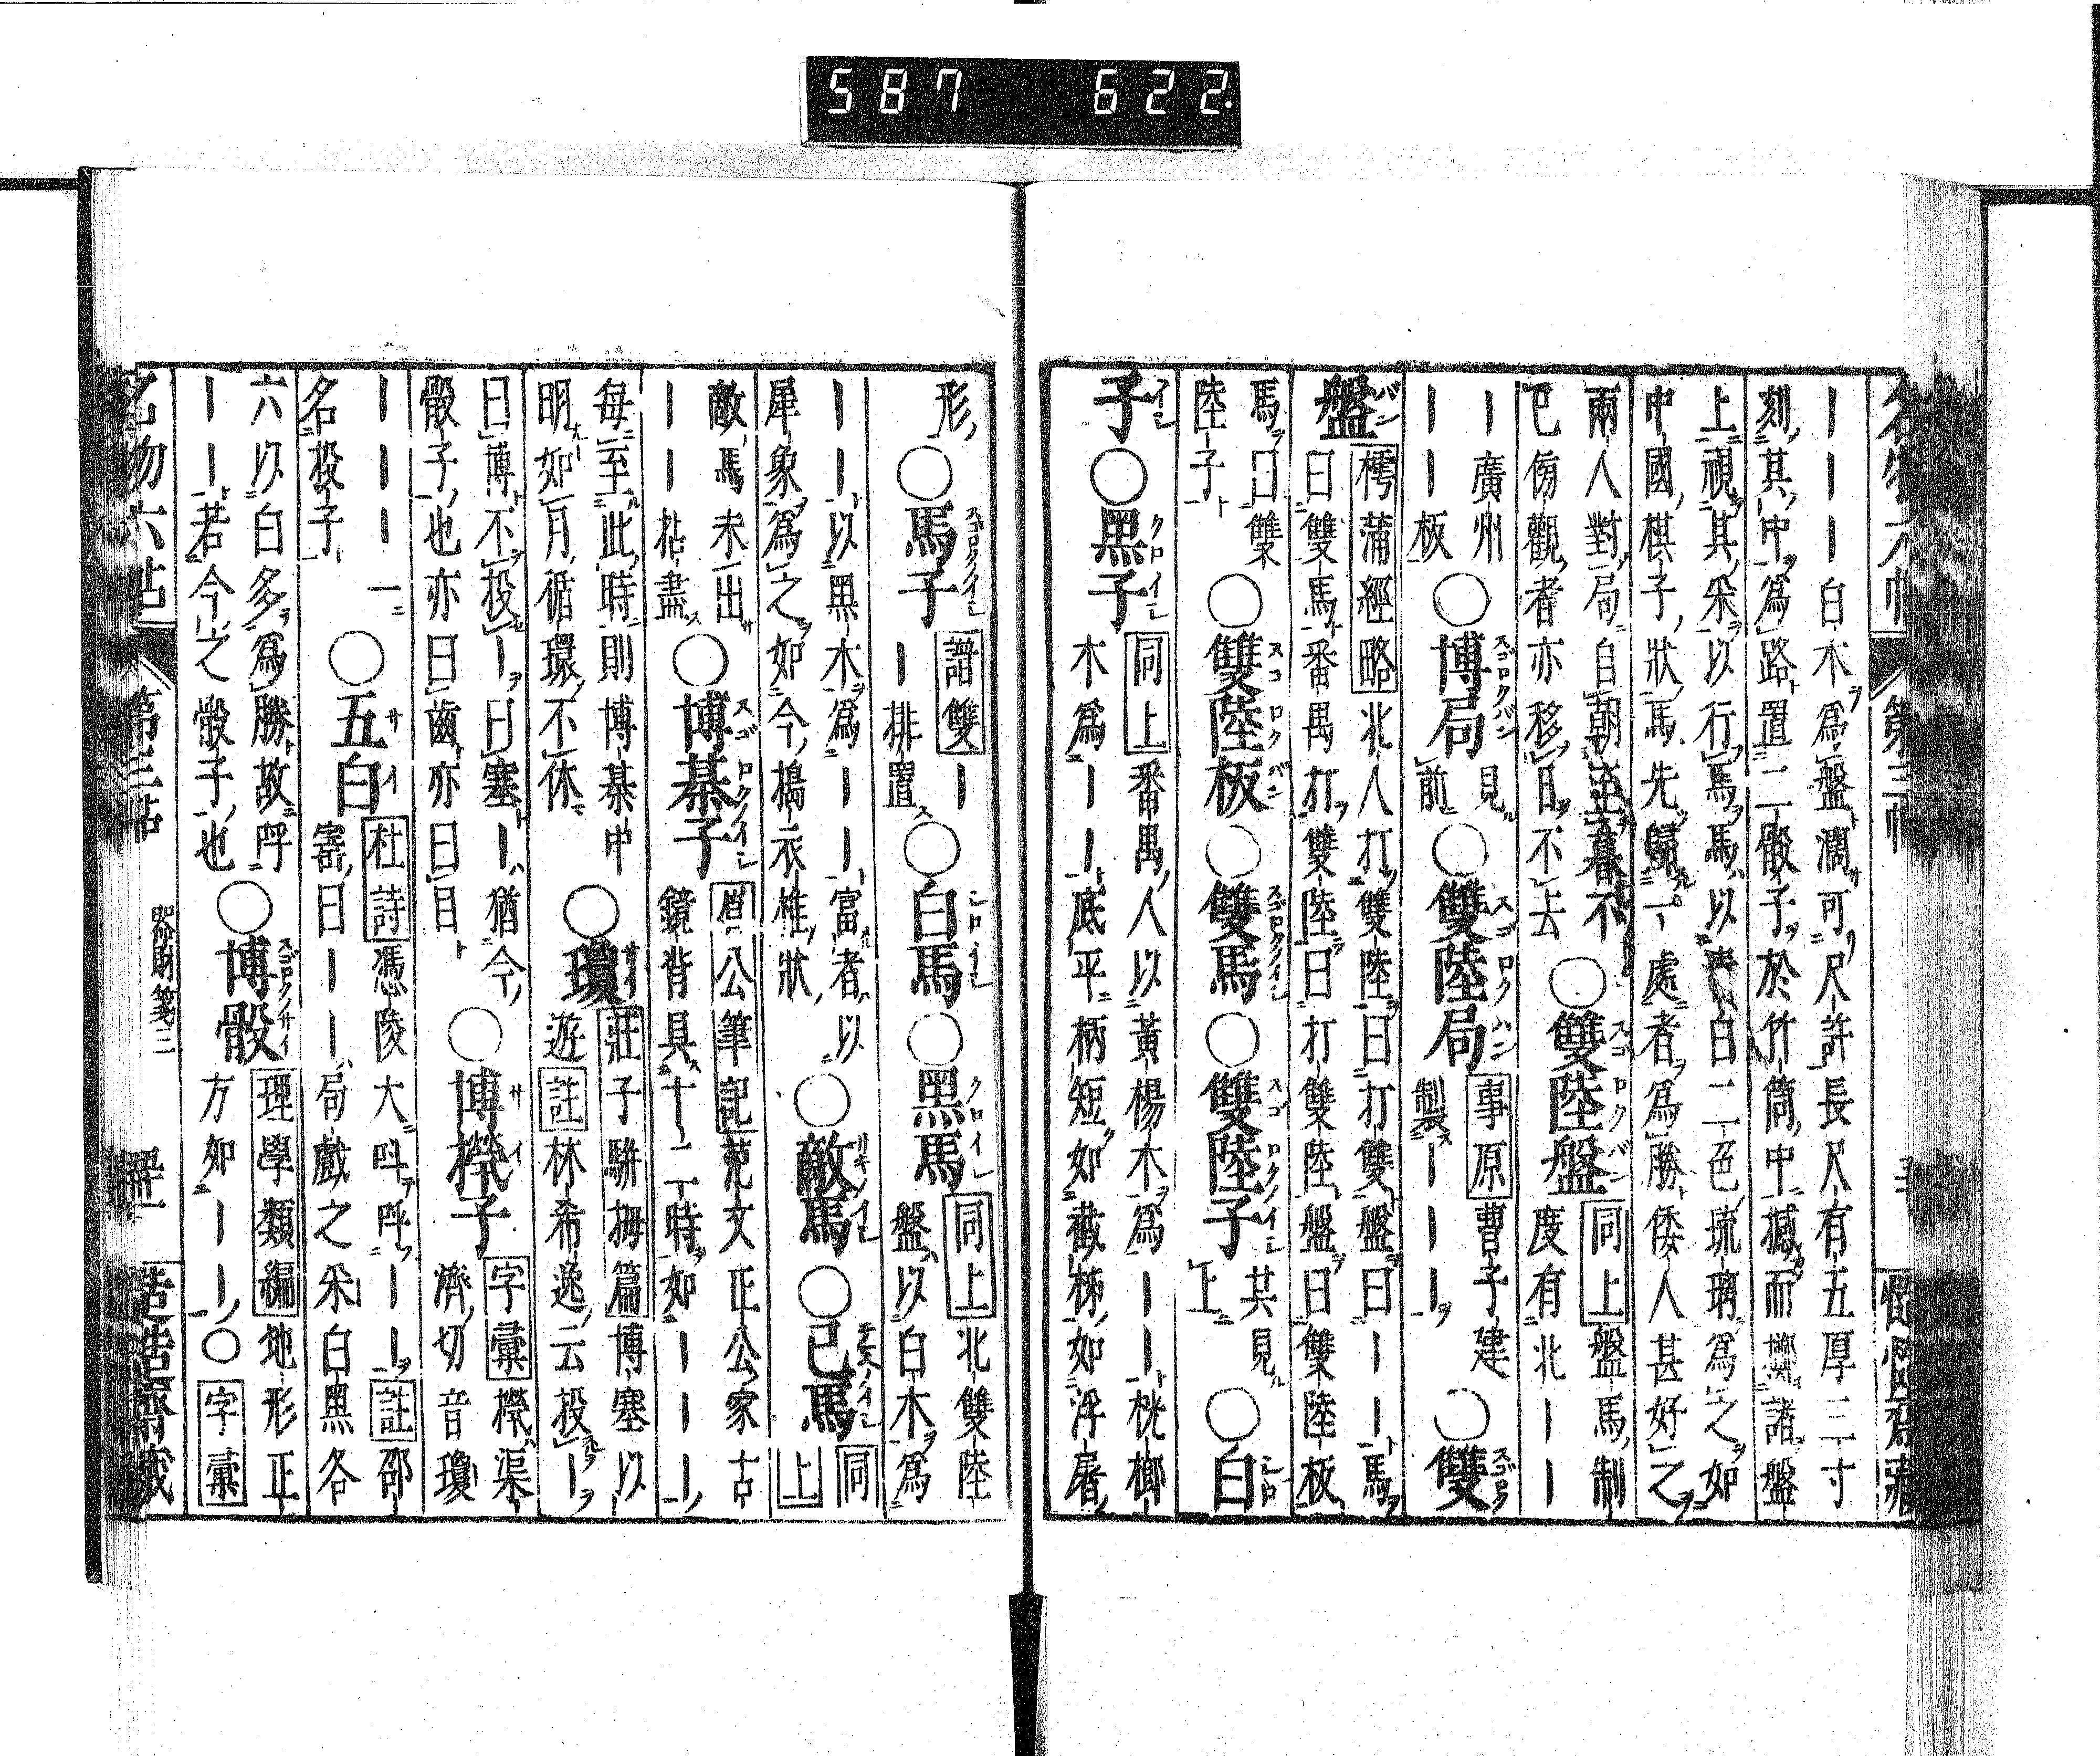 ｜｜｜白木爲盤濶可尺許長尺有五厚三寸
刻其中爲路置二骰子於竹筒中撼而擲諸盤
上視其采以行馬馬以白二色琉璃爲之如
中國棋子狀馬先歸一處者爲勝倭人甚好之
兩人對局自朝至暮不
已傍觀者亦移日不去
○雙陸盤
同上盤馬制
度有北｜｜
｜廣州
｜｜板
○博局
見
前
○雙陸局
事原曹子建
製｜｜｜
○雙
盤
樗蒲經略北人打雙陸曰打雙盤曰｜｜馬
曰雙馬番禺打雙陸曰打雙陸盤曰雙陸板
馬曰雙
陸子
○雙陸板○雙馬○雙陸子
其見
上
○白
子○黑子
同上番禺人以黃楊木爲｜｜桄榔
木爲｜｜底平柄短如截柹如浮屠
形○馬子
譜雙｜
｜排置
○白馬○黑馬
同上北雙陸
盤以白木爲
｜以黑木爲｜｜富者以
犀象爲之如今搗衣椎狀
○敵馬○己馬
同
上
敵馬未出
｜｜拈盡
○博棊子
眉公筆記范文正公家古
鏡背具十二時如｜｜｜
每至此時則博棊中
明如月循環不休
○瓊
莊子駢拇篇博塞以
遊註林希逸云投｜
曰博不投｜曰塞｜猶今
骰子也亦曰齒亦曰目
○博橩子
字彙橩渠
濟切音瓊
｜｜｜一
名投子
○五白
杜詩憑陵大呌呼｜｜註邵
寶曰｜｜局戲之采白黑各
六以白多爲勝故呼
｜｜若今之骰子也
○博骰
理學類編地形正
方如｜｜○字彙
名物六帖 第三帖 器財箋三
587 622